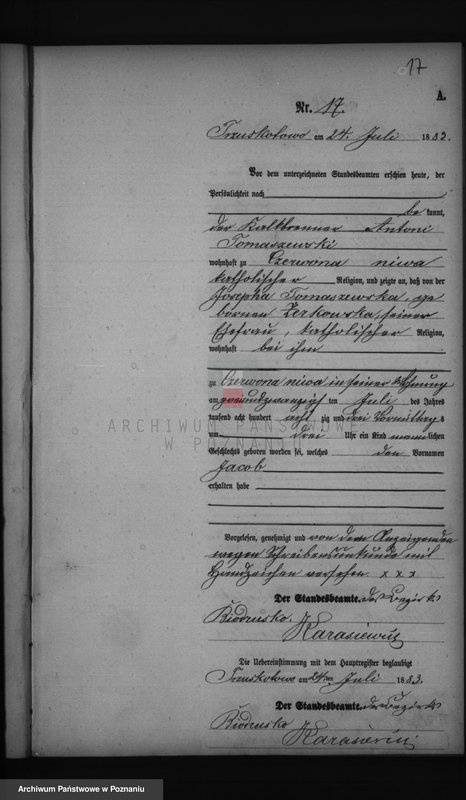 17
A.
Nr. 17.
Trzuskotowo am 24. Juli 1883.
Vor dem unterzeichneten Standesbeamten erschien heute, der
Persönlichkeit nach
be kannt,
der Kalkbrenner Antoni
Tomaszewski
wohnhaft zu Czerwona niwa
katholischer Religion, und zeigte an, daß von der
Josepha Tomaszewska, ge
bornen Zerkowska, seiner
Ehefrau, katholischer Religion,
wohnhaft bei ihm
zu Czerwona niwa in seiner Wohnung
am zweiundzwanzigsten Juli des Jahres
tausend acht hundert acht zig und drei Vormittag s
um drei Uhr ein Kind männlichen
Geschlechts geboren worden sei, welches den Vornamen
Jacob
erhalten habe
Vorgelesen, genehmigt und von dem Anzeigenden
wegen Schreibensunkunde mit
Handzeichen versehen x x x
Der Standesbeamte. des Bezirks
Biedrusko.
Karasiewicz
Die Uebereinstimmung mit dem Hauptregister beglaubigt
Trzuskotowo am 24ten Juli 1883.
Der Standesbeamte. des Bezirks
Biedrusko
Karasiewicz
ARCHIWUM PAŃSTWOWE
W POZNANIU
Archiwum Państwowe w Poznaniu